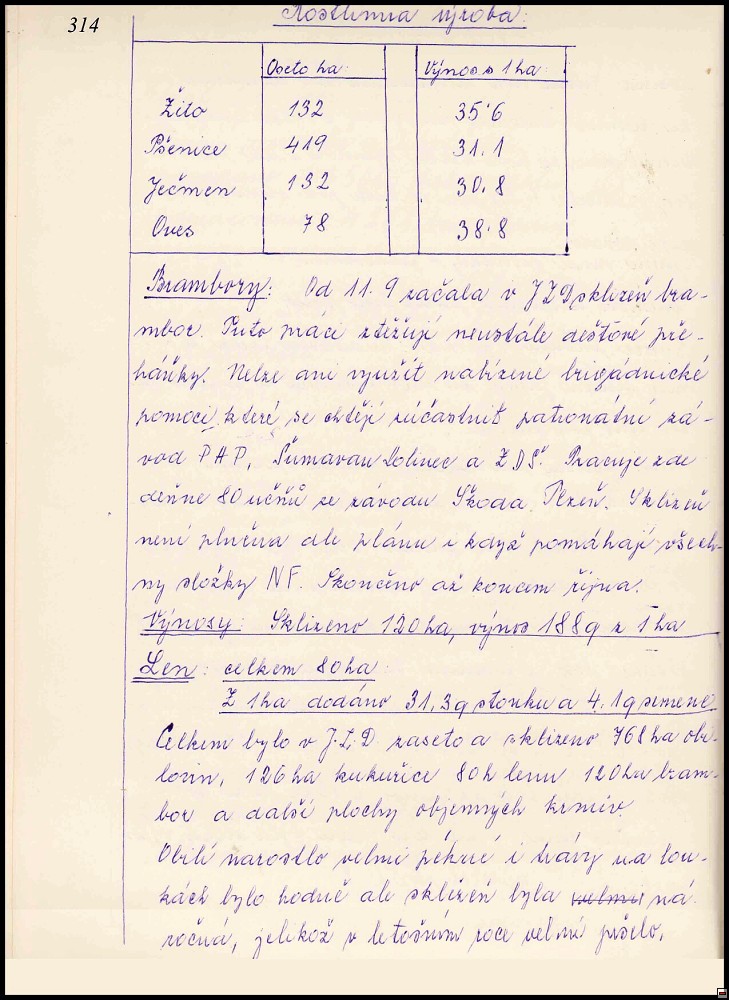 314
Rostlinná výroba:
Oseto ha: Výnos s 1ha:
Žito 132 35.6
Pšenice 419 31.1
Ječmen 132 30.8
Oves 78 38.8
Brambory: Od 11.9 začala v JZD sklizeň bra-
mbor. Tuto práci ztěžují neustále dešťové pře-
háňky. Nelze ani využít nabízené brigádnické
pomoci, které se chtějí zúčastnit patronátní zá-
vod PAP, Šumavan Dolinec a ZDŠ. Pracuje zde
denne 80 učňů ze závodu Škoda Plzeň. Sklizeň
není plněna dle plánu i když pomáhají všech-
ny složky NF. Skončeno až koncem října.
Výnosy: Sklizeno 120ha, výnos 188q z 1ha
Len: celkem 80ha
Z 1ha dodáno 31,3q stonku a 4,1q semene
Celkem bylo v J.Z.D zaseto a sklizeno 768ha obi-
lovin, 126ha kukuřice 80h lenu 120ha bram-
bor a další plochy objemných krmiv.
Obilí narostlo velmi pěkné i trávy na lou-
kách bylo hodně ale sklizeň byla velmi ná
ročná, jelikož v letošním roce velmi pršelo,